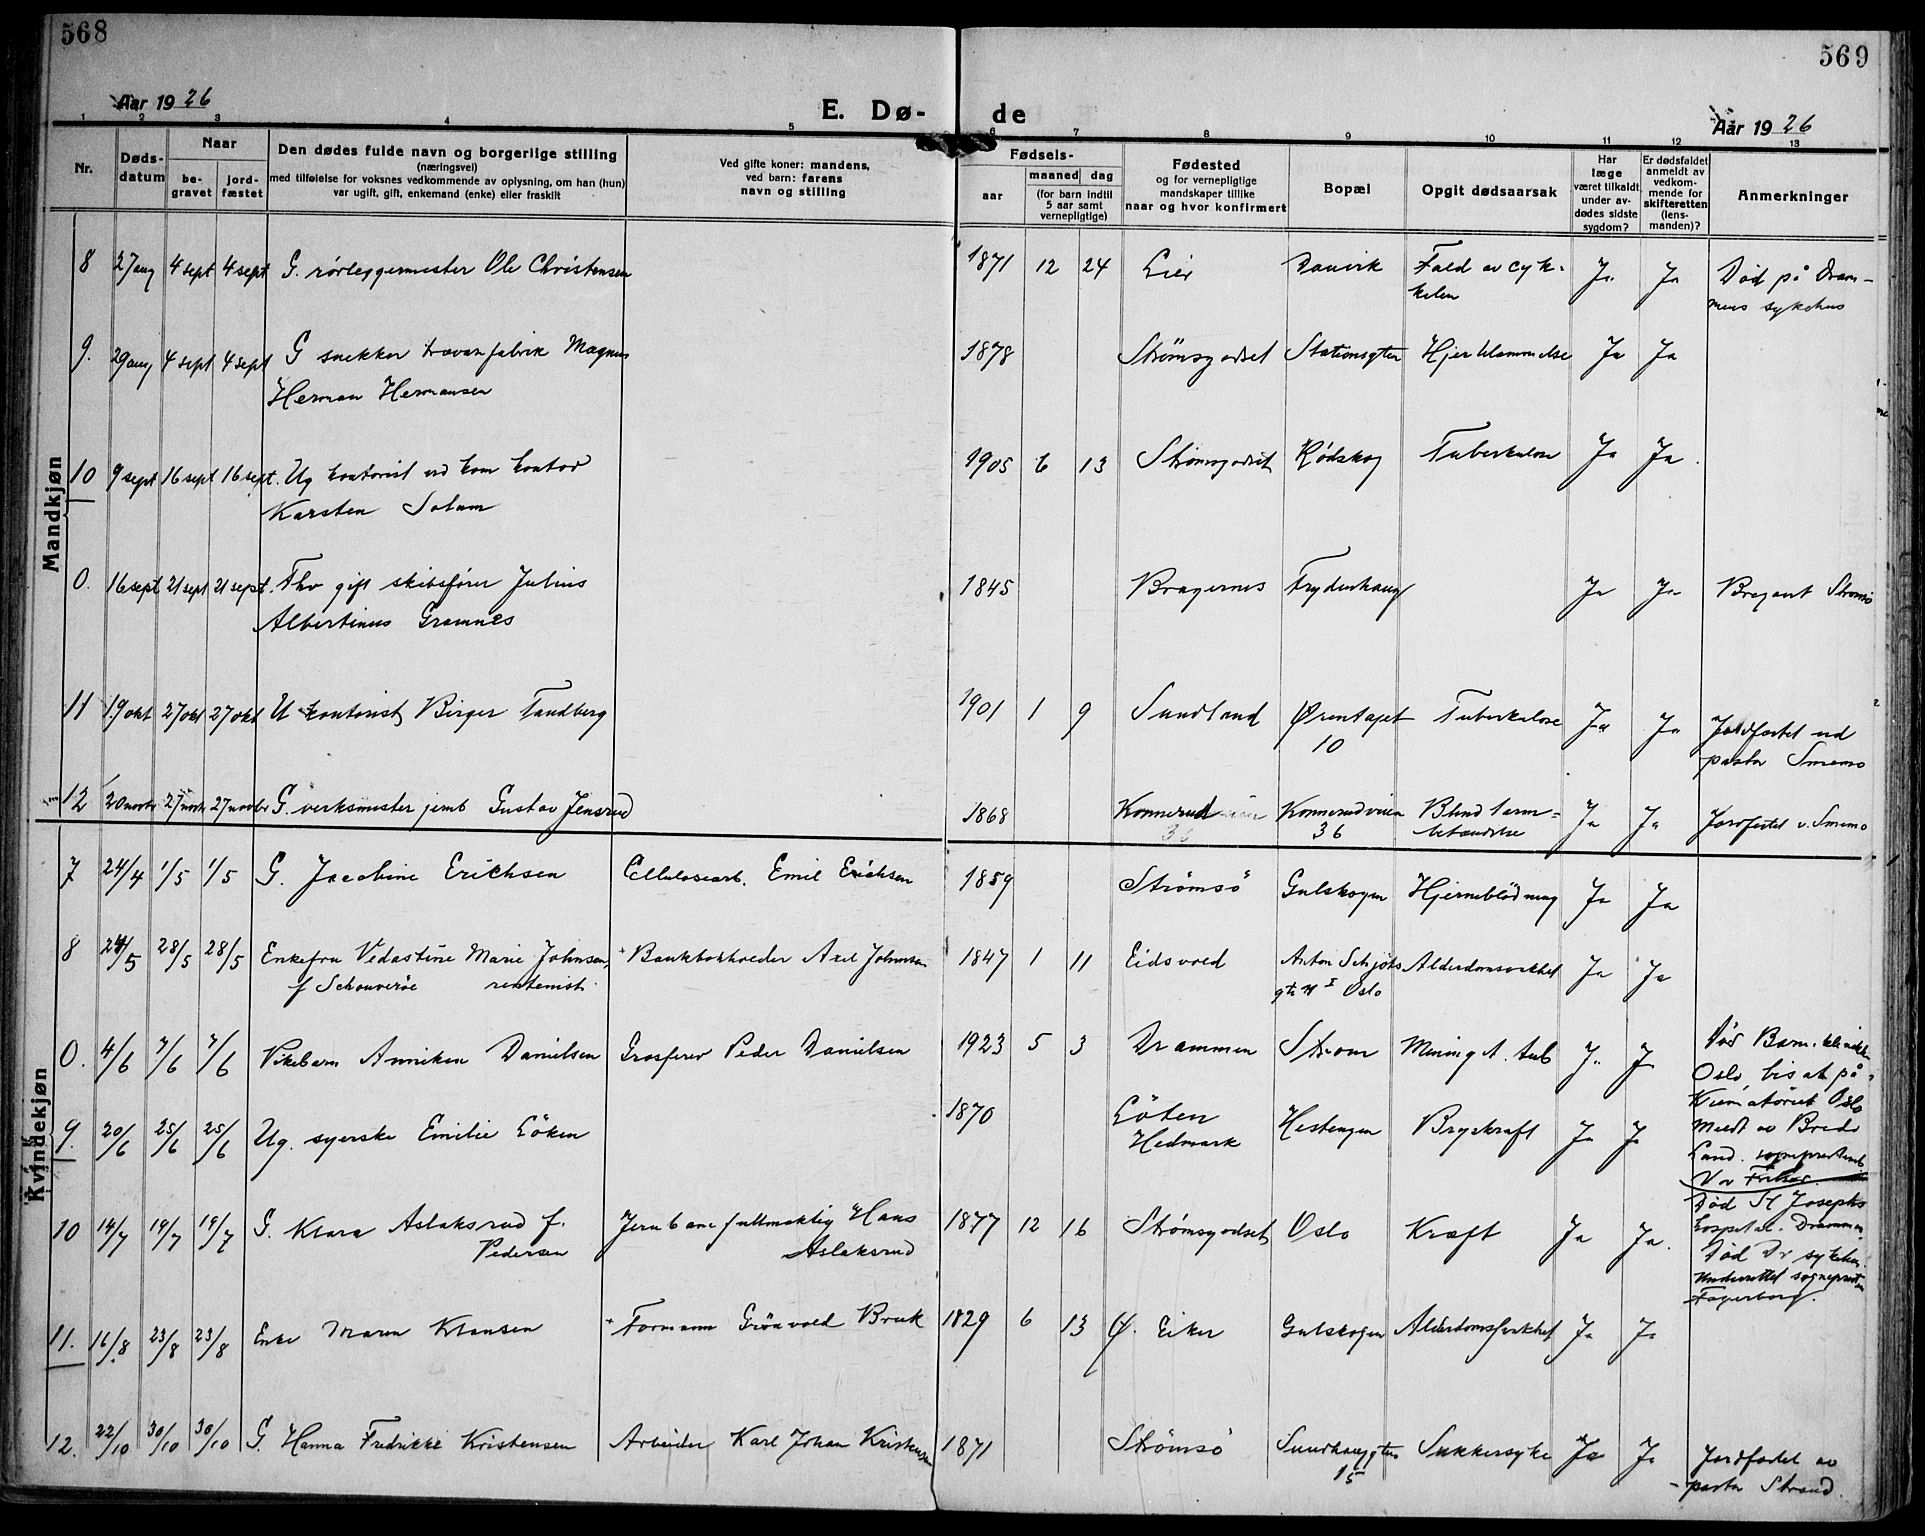 568
569
Aar 1926
E. Dø-
de
Aar 1926
1 2 3 4 5 6 7 8 9 10 11 12 13
Nr.
Døds-
datum
Naar
be-
gravet
jord-
fæstet
Den dødes fulde navn og borgerlige stilling
(næringsvei)
med tilføielse for voksnes vedkommende av oplysning, om han (hun)
var ugift, gift, enkemand (enke) eller fraskilt
Ved gifte koner: mandens,
ved barn: farens
navn og stilling
Fødsels-
aar
maaned dag
(for barn indtil
5 aar samt
vernepligtige)
Fødested
og for vernepligtige
mandskaper tillike
naar og hvor konfirmert
Bopæl
Opgit dødsaarsak
Har
læge
været tilkaldt
under av-
dødes sidste
sygdom?
Er dødsfaldet
anmeldt av
vedkom-
mende for
skifteretten
(lens-
manden)?
Anmerkninger
Mandkjøn
8 27 aug 4 sept 4 sept G. rørleggermester Ole Christensen 1871 12 24 Lier Danvik Fald av cyk-
kelen Ja Ja Død på Dram-
mens sykehus
9. 29 aug 4 sept 4 sept G snekker trævarefabrik Magnus
Herman Hermansen 1878 Strømsgodset Stationsgten Hjerteklammelse Ja Ja
10 9 sept 16 sept 16 sept. Ug kontorist ved kom kontor
Karsten Solum 1905 6 13 Strømsgodset Rødskog Tuberkulose Ja Ja.
0. 16 sept 21 sept 21 sept. Fhv gift skibsfører Julius
Albertinus Gramnes 1845 Bragernes Frydenhaug Ja Ja Begravet Strømsø
11 19 okt 27 okt 27 okt U kontorist Birger Tandberg 1901 1 9 Sundland Ørentapet
10 Tuberkulose Ja Ja Jordfæstet ved
pastor Smemo
12 20 novbr 27 novbr 27 novbr G. verksmester jernb Gustav Jensrud 1868 Konnerud Konnerudveien
36 Blindtarm-
betændelse Ja Ja Jordfestet v. Smemo
Kvindekjøn
7 24/4 1/5 1/5 G. Jacobine Erichsen Cellulosearb. Emil Erichsen 1859 Strømsö Gulskogen Hjerneblödning Ja Ja
8 24/5 28/5 28/5 Enkefru Vedastine Marie Johnsen,
f Schouverøe rentenist. Bankbokholder Axel Johnsen 1847 1 11 Eidsvold Anton Schjöts
gt Oslo Alderdomssvakhet Ja Ja
0. 4/6 7/6 7/6 Pikebarn Anniken Danielsen Grosserer Peder Danielsen 1923 5 3 Drammen Strøm Mening t. tub Ja Ja Død Barneklinikken
Oslo, bisat på
Krematoriet Oslo
9. 20/6 25/6 25/6 Ug. syerske Emilie Löken 1870 Löten
Hedmark Hestengen Brystkraft Ja Ja
10 14/7 19/7 19/7 G. Klara Aslaksrud f.
Pedersen Jernbanefullmektig Hans
Aslaksrud 1877 12 16 Strømsgodset Oslo Kræft Ja Ja. Død St Josephs
hospital. Drammen
Død Dr sykehus.
Underrettet sognepresten
Fagerborg.
11. 16/8 23/8 23/8 Enke Maren Klausen Formann Grönvold Bruk 1829 6 13 Ø. Eiker Gulskogen Alderdomssvakhet Ja Ja
12. 22/10 30/10 30/10 G. Hanna Fredrikke Kristensen Arbeider Karl Johan Kristensen 1871 Strömsö Sundhauggten
15 Sukkersyke Ja Ja Jordfæstet av
pastor Strand.